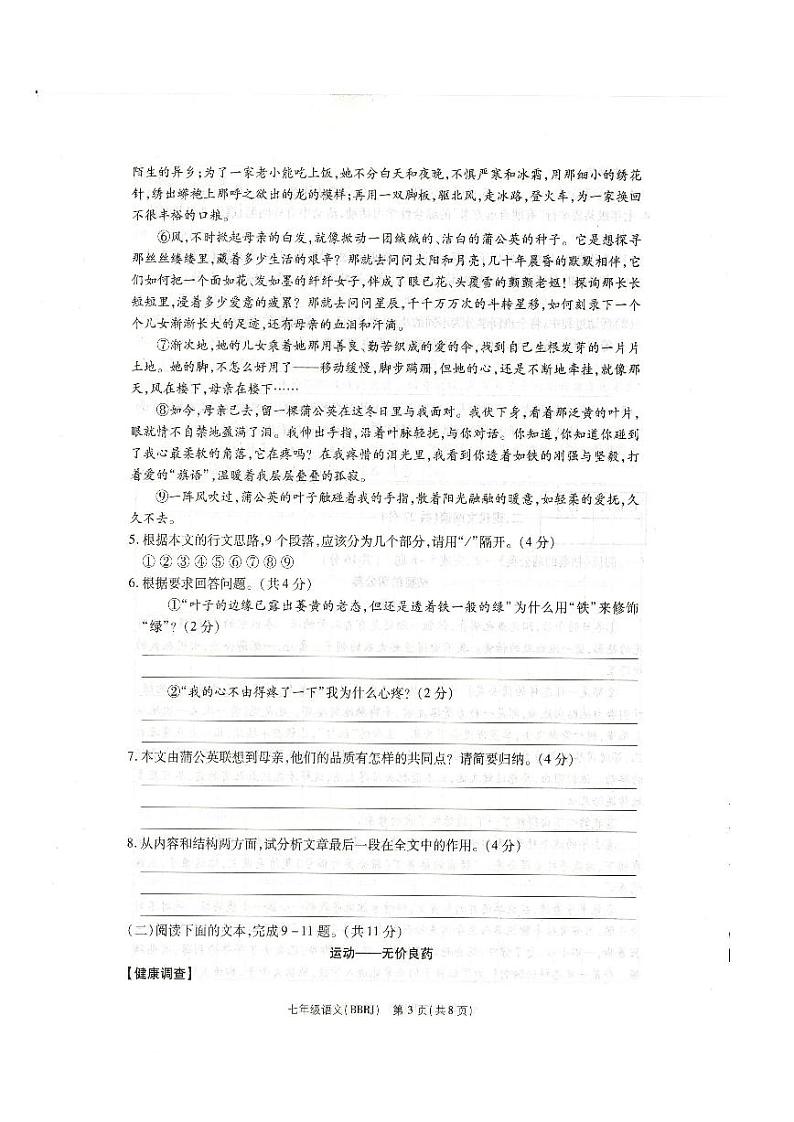 陌生的异乡;为了一家老小能吃上饭,她不分白天和夜晚,不惧严寒和冰霜,用那细小的绣花
针,绣出蟒袍上那呼之欲出的龙的模样;再用一双脚板,驱北风,走冰路,登火车,为一家换回
不很丰裕的口粮。
⑥风,不时掀起母亲的白发,就像掀动一团绒绒的、洁白的蒲公英的种子。它是想探寻
那丝丝缕缕里,藏着多少生活的艰辛?那就去问问太阳和月亮,几十年晨昏的默默相伴,它
们如何把一个面如花、发如墨的纤纤女子,伴成了眼已花、头覆雪的颤颤老妪!探询那长长
短短里,浸着多少爱意的疲累?那就去问问星辰,千千万万次的斗转星移,如何刻录下一个
个儿女渐渐长大的足迹,还有母亲的血泪和汗滴。
⑦渐次地,她的儿女乘着她那用善良、勤苦织成的爱的伞,找到自己生根发芽的一片片
土地。她的脚,不怎么好用了——移动缓慢,脚步蹒跚,但她的心,还是不断地牵挂,就像那
天,风在楼下,母亲在楼下……
⑧如今,母亲已去,留一棵蒲公英在这冬日里与我面对。我伏下身,看着那泛黄的叶片,
眼就情不自禁地盈满了泪。我伸出手指,沿着叶脉轻抚,与你对话。你知道,你知道你碰到
了我心最柔软的角落,它在疼吗?在我疼惜的泪光里,我看到你透着如铁的刚强与坚毅,打
着爱的“旗语”,温暖着我层层叠叠的孤寂。
⑨一阵风吹过,蒲公英的叶子触碰着我的手指,散着阳光融融的暖意,如轻柔的爱抚,久
久不去。
5. 根据本文的行文思路,9 个段落,应该分为几个部分,请用“/”隔开。(4 分)
① ② ③ ④ ⑤ ⑥ ⑦ ⑧ ⑨
6. 根据要求回答问题。(共 4 分)
①“叶子的边缘已露出萎黄的老态,但还是透着铁一般的绿”为什么用“铁”来修饰
“绿”?(2 分)
②“我的心不由得疼了一下”我为什么心疼?(2 分)
7. 本文由蒲公英联想到母亲,他们的品质有怎样的共同点?请简要归纳。(4 分)
8. 从内容和结构两方面,试分析文章最后一段在全文中的作用。(4 分)
(二)阅读下面的文本,完成 9-11 题。(共 11 分)
运动——无价良药
【健康调查】
七年级语文(BBRJ) 第 3 页(共 8 页)